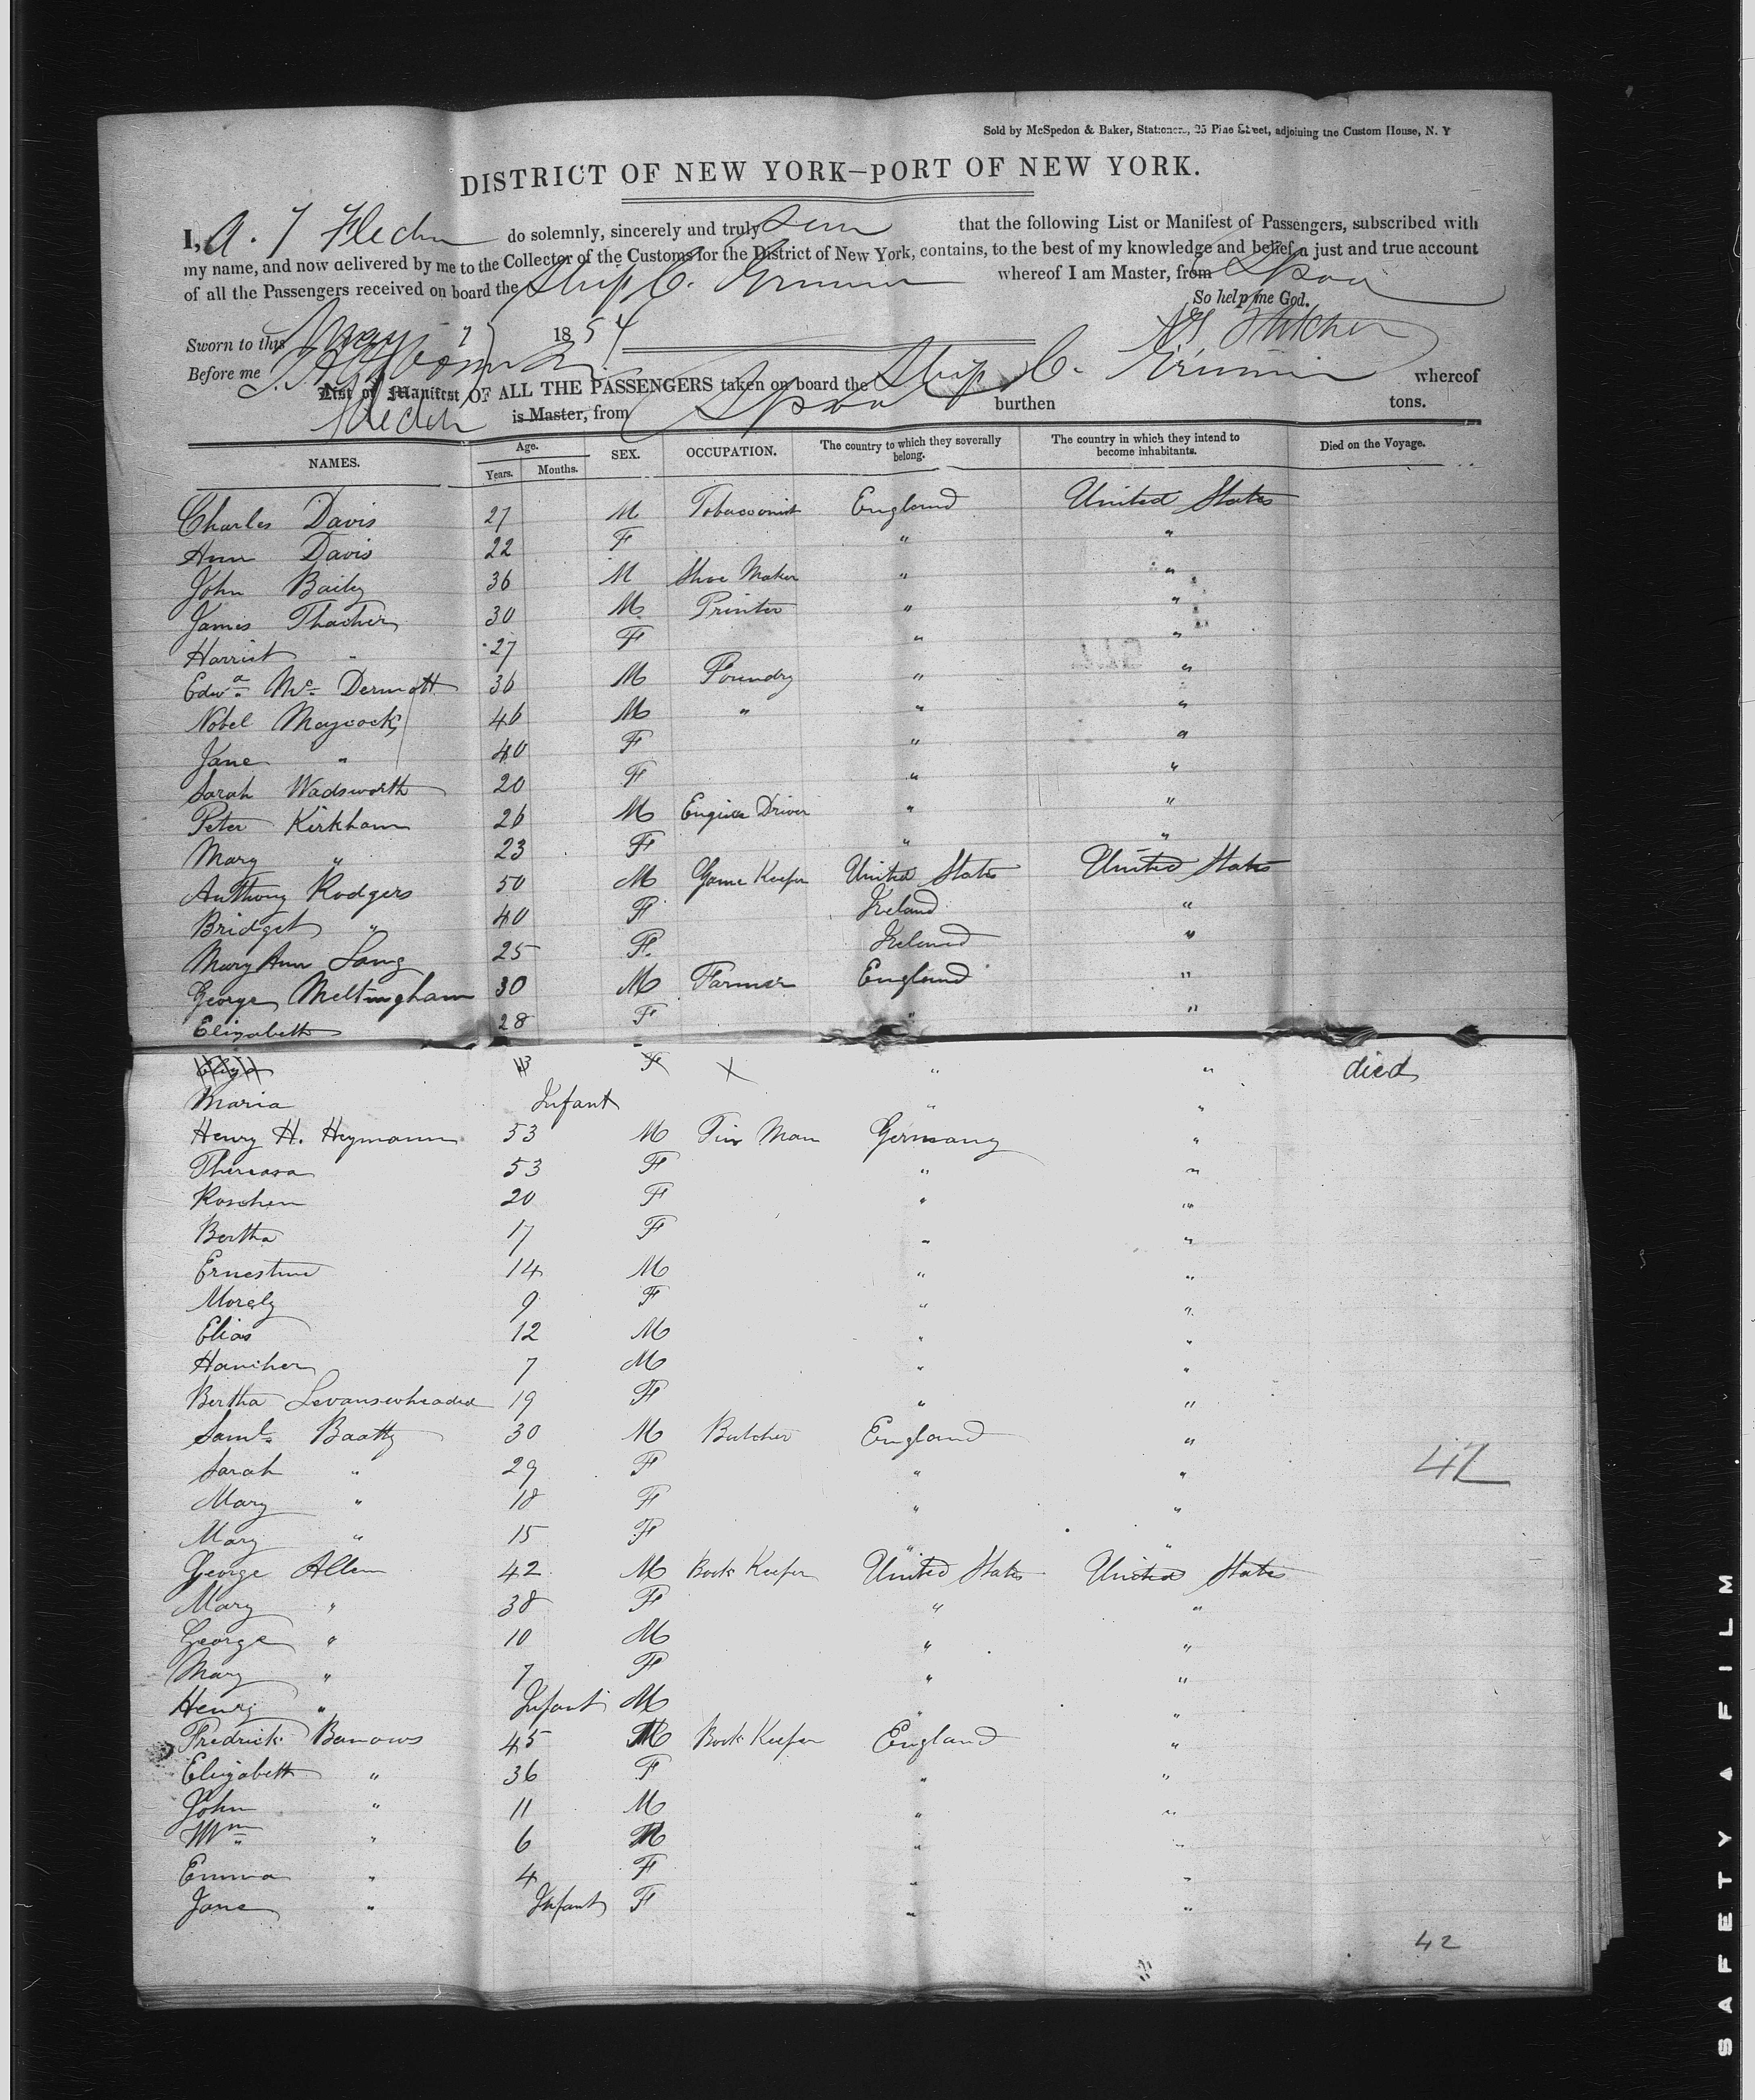 Sold by McSpedon & Baker, Stationers, 25 Pine Street, adjoining the Custom House, N. Y
DISTRICT OF NEW YORK—PORT OF NEW YORK.
I, A. T do solemnly, sincerely and truly that the following List or Manifest of Passengers, subscribed with
my name, and now delivered by me to the Collector of the Customs for the District of New York, contains, to the best of my knowledge and belief, a just and true account
of all the Passengers received on board the Ship C. whereof I am Master, from
So help me God.
Sworn to this May 1854
Before me
List or Manifest OF ALL THE PASSENGERS taken on board the Ship C. whereof
is Master, from burthen tons.
NAMES. Age. Years. Months. SEX. OCCUPATION. The country to which they severally belong. The country in which they intend to become inhabitants. Died on the Voyage.
Charles Davis 27 M Tobacconist England United States
Ann Davis 22 F " "
John Baily 36 M Shoe Maker " "
James Thacher 30 M Printer " "
Harriet " 27 F " "
Edwd Mc Dermott 36 M Foundry " "
Nobel Maycock 46 M " " "
Jane " 40 F " "
Sarah Wadsworth 20 F " "
Peter Kirkham 26 M Engine Driver " "
Mary " 23 F " "
Anthony Rodgers 50 M Game Keeper United States United States
Bridget " 40 F Ireland "
Mary Ann Lang 25 F. Ireland "
George Meltingham 30 M Farmer England "
Elizabeth 28 F " "
Eliza 3 F X " " died
Maria Infant " "
Henry H. Heymann 53 M Tin Man Germany "
Thereasa 53 F " "
Roschen 20 F " "
Bertha 17 F " "
Ernestine 14 M " "
Morely 9 F " "
Elias 12 M " "
Hanchen 7 M " "
Bertha 19 F " "
Saml. Baatty 30 M Butcher England "
Sarah " 29 F " "
42
Mary " 18 F " "
Mary " 15 F " "
George Allen 42 M Book Keeper United States United States
Mary " 38 F " "
George " 10 M " "
Mary " 7 F " "
Henry " Infant M " "
Fredrick Barrows 45 M Book Keeper England "
Elizabeth " 36 F " "
John " 11 M " "
Wm " 6 M " "
Emma " 4 F " "
Jane " Infant F " "
42
SAFETY A FILM